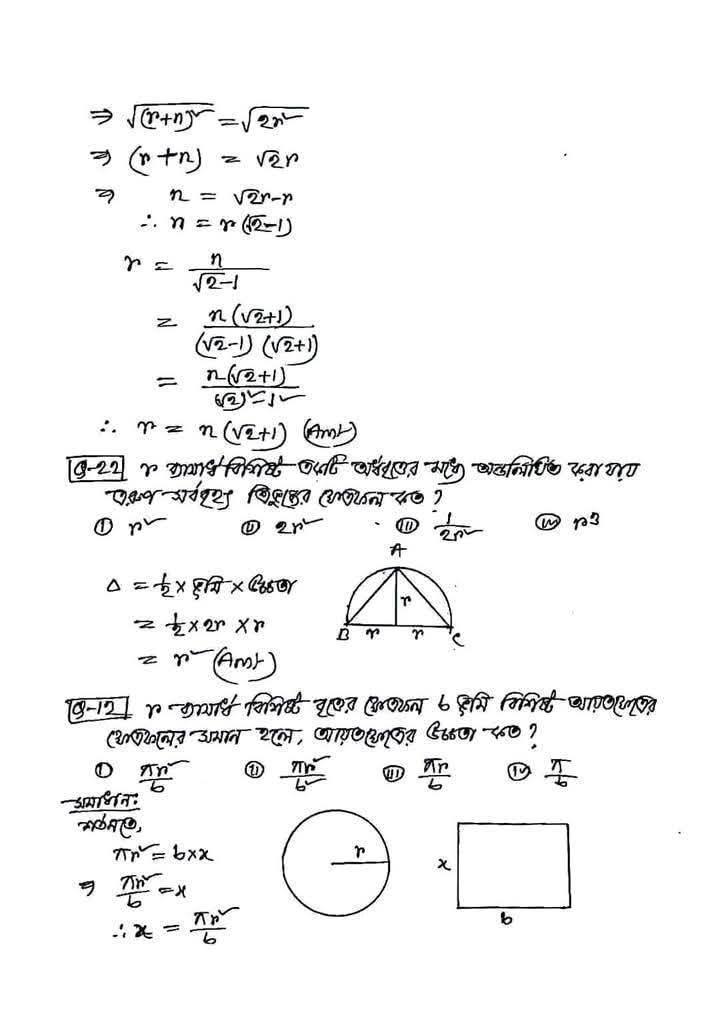 ⇒ √(r+n)² = √2r²
⇒ (r+n) = √2r
⇒ n = √2r-r
∴ n = r(√2-1)
r = n/(√2-1)
= n(√2+1)/((√2-1)(√2+1))
= n(√2+1)/((√2)²-1²)
∴ r = n(√2+1) (Ans)
Q-22 r ব্যাসার্ধ বিশিষ্ট একটি অর্ধবৃত্তের মধ্যে অন্তর্লিখিত করা যায়
এরূপ সর্ববৃহৎ ত্রিভুজের ক্ষেত্রফল কত?
i r² ii 2r² iii 1/2r² iv r3
A
Δ = ½ × ভূমি × উচ্চতা
r
= ½ × 2r × r
B r r C
= r² (Ans)
Q-12 r ব্যাসার্ধ বিশিষ্ট বৃত্তের ক্ষেত্রফল b ভূমি বিশিষ্ট আয়তক্ষেত্রের
ক্ষেত্রফলের সমান হলে, আয়তক্ষেত্রের উচ্চতা কত?
i πr²/b ii πr²/b² iii πr/b iv π/b
সমাধান:
শর্তমতে,
πr² = b×x
r
x
⇒ πr²/b = x
b
∴ x = πr²/b